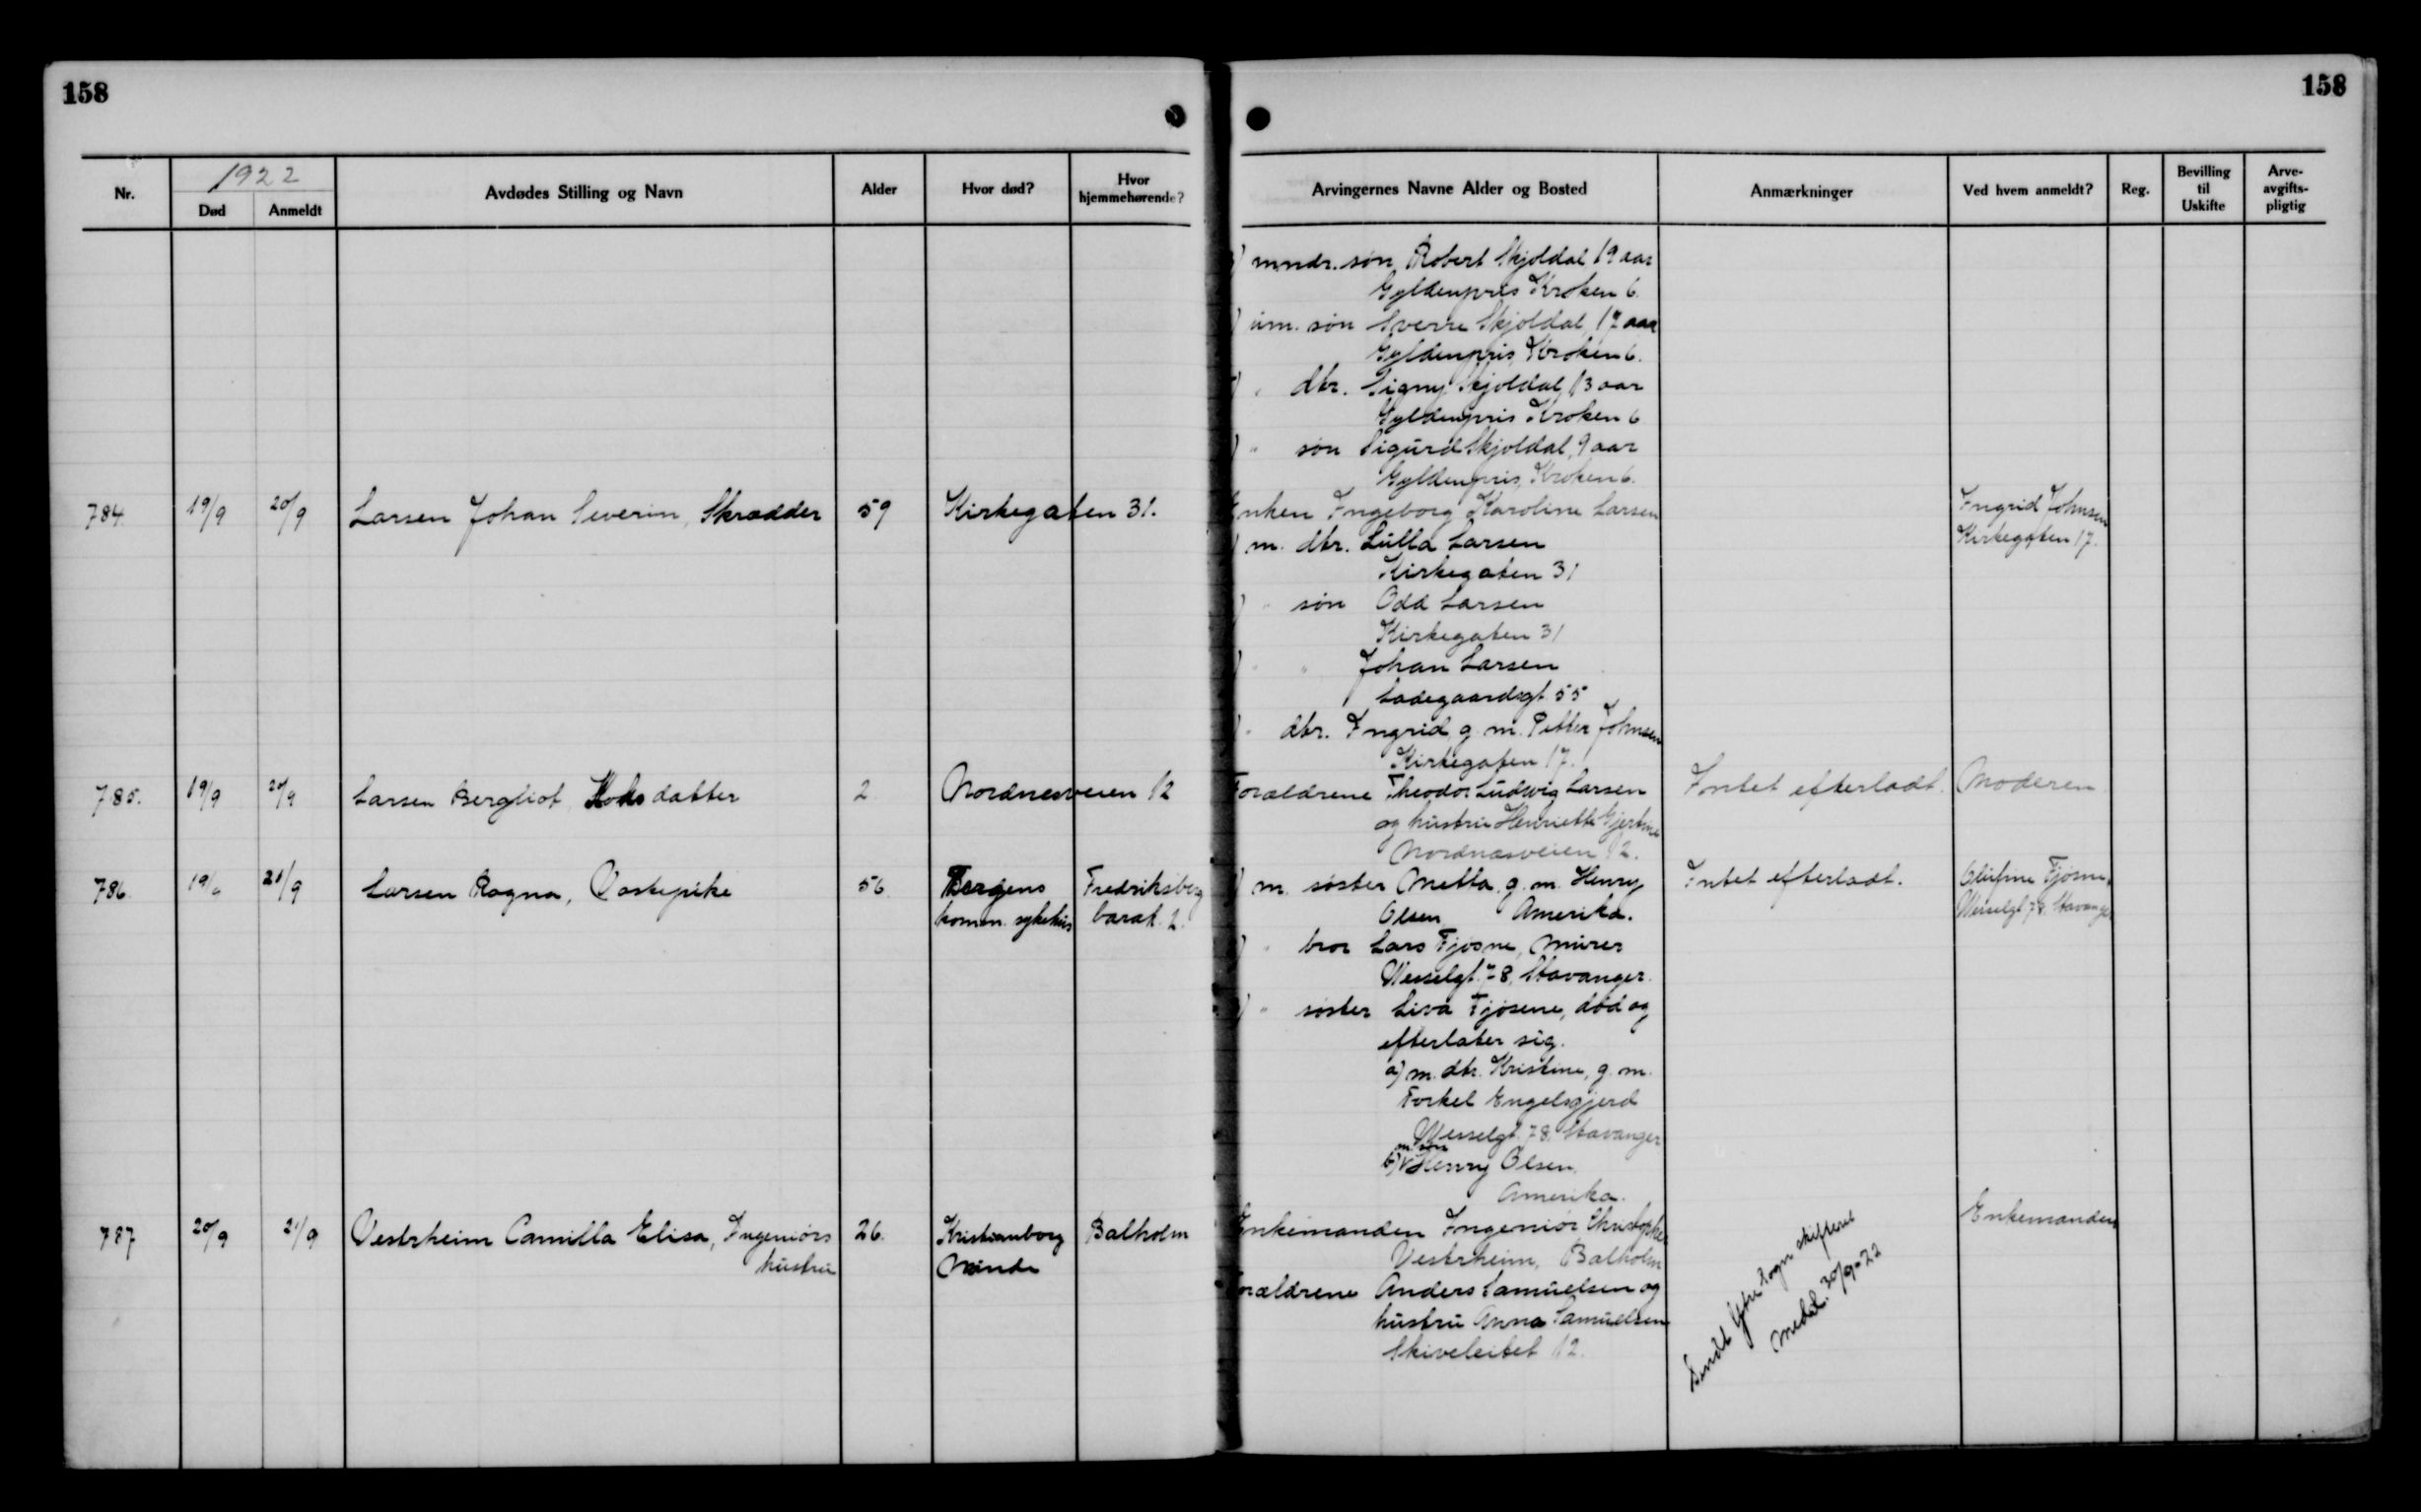 158
158
Nr.
1922
Død
Anmeldt
Avdødes Stilling og Navn
Alder
Hvor død?
Hvor
hjemmehørende?
Arvingernes Navne Alder og Bosted
Anmærkninger
Ved hvem anmeldt?
Reg.
Bevilling
til
Uskifte
Arve-
avgifts-
pligtig
) mndr. søn Robert Skjoldal 19 aar
Gyldenpris Kroken 6.
) um. søn Sverre Skjoldal, 17 aar
Gyldenpris Kroken 6.
) " dtr. Signy Skjoldal, 13 aar
Gyldenpris Kroken 6
) " søn Sigurd Skjoldal, 9 aar
Gyldenpris, Kroken 6.
784. 19/9 20/9 Larsen Johan Severin, Skrædder 59 Kirkegaten 31.
Enken Ingeborg Karoline Larsen
) m. dtr. Lulla Larsen
Kirkegaten 31
) " søn Odd Larsen
Kirkegaten 31
) " " Johan Larsen
Ladegaardsgt 55
) " dtr. Ingrid, g. m. Petter Johnsen
Kirkegaten 17.
Ingrid Johnsen
Kirkegaten 17.
785. 19/9 20/9 Larsen Bergliot, datter 2 Nordnesveien 12
Forældrene Theodor Ludvig Larsen
og hustru Henriette Gjertine
Nordnæsveien 12.
Intet efterladt. Moderen
786. 19/9 21/9 Larsen Ragna, Vaskepike 56. Bergens
komm. sykehus
Fredriksberg
barak 2.
) m. søster Metta, g. m. Henry
Olsen Amerika.
) " bror Lars Fjøsne, Murer
Wesselgt. 78, Stavanger.
) " søster Liva Fjøsene, død og
efterlater sig.
a) m. dtr. Kristine, g. m.
Torkel Engelsgjerd
Wesselgt. 78, Stavanger
m søn
b) Henry Olsen,
Amerika.
Intet efterladt.
Olufine Fjøsne,
Wesselgt. 78, Stavanger
787 20/9 21/9 Vestrheim Camilla Elisa, Ingeniørs
hustru
26.
Kristianborg
Minde
Balholm
Enkemanden Ingeniør Christopher
Vestrheim, Balholm
Forældrene Anders Samuelsen og
hustru Anna Samuelsen
Skiveleitet 12.
Sendt Ytre Sogn skifteret
Medd. 30/9-22
Enkemanden